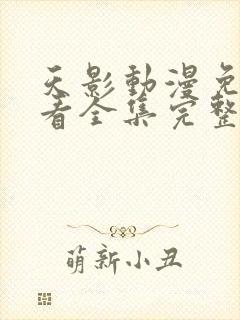 天影動漫免
看全集完整
萌新小丑